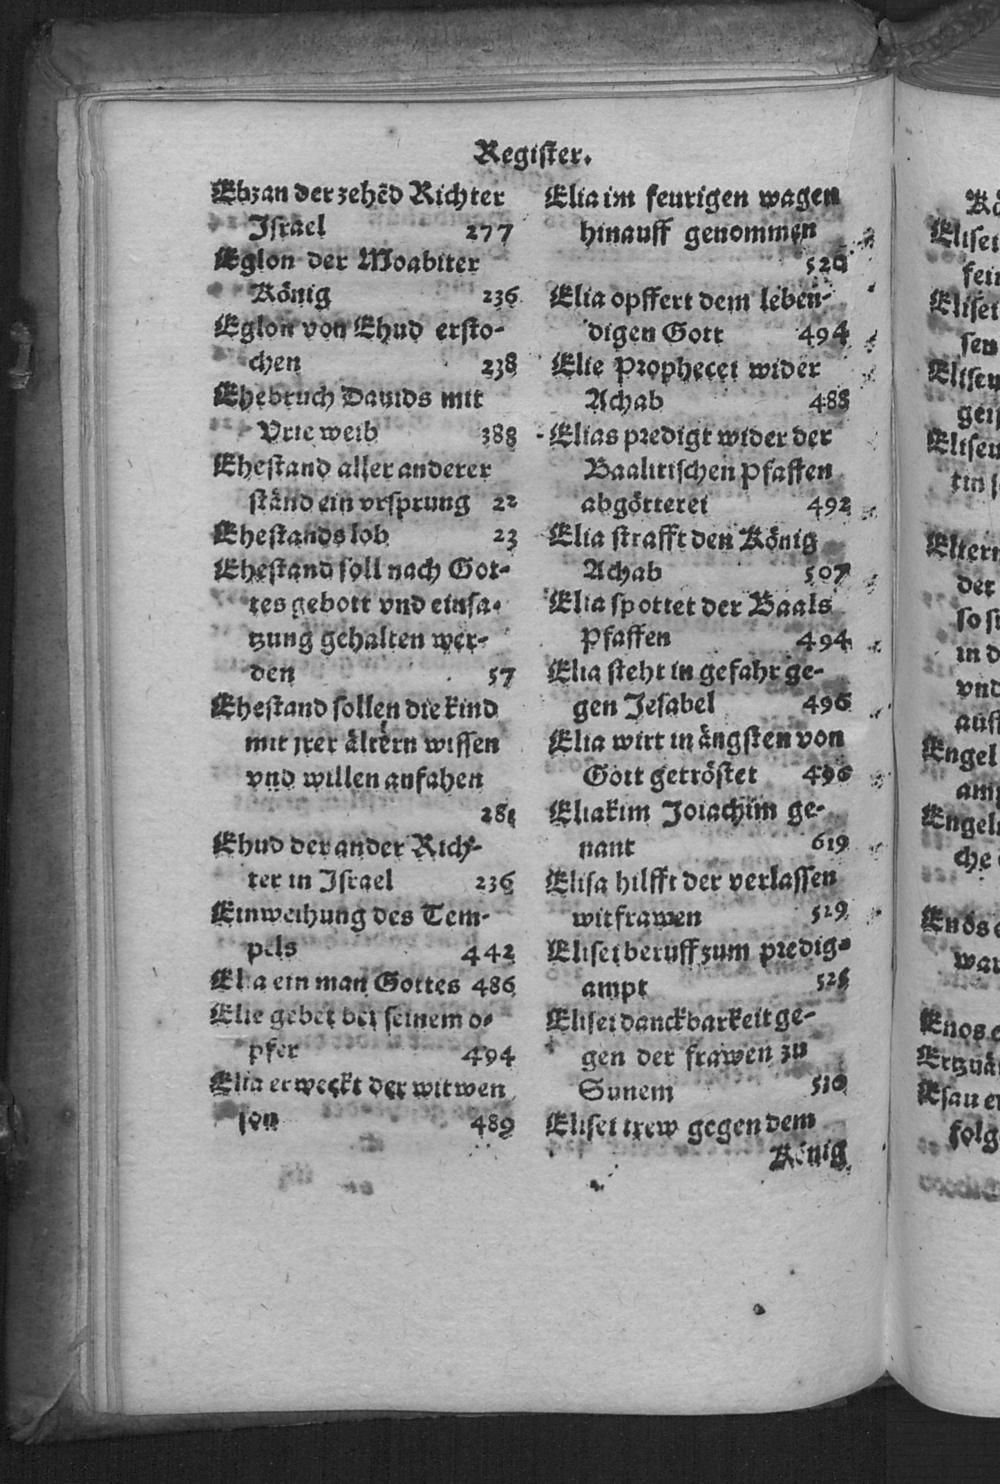 Register.
Ebzan der zehēd Richter
Israel 277
Eglon der Moabiter
König 236
Eglon von Ehud ersto-
chen 238
Ehebruch Dauids mit
Vrie weib 388
Ehestand aller anderer
ständ ein vrsprung 22
Ehestands lob 23
Ehestand soll nach Got-
tes gebott vnd einsa-
tzung gehalten wer-
den 57
Ehestand sollen die kind
mit jrer ältern wissen
vnd willen anfahen
281
Ehud der ander Rich-
ter in Israel 236
Einweihung des Tem-
pels 442
Elia ein man Gottes 486
Elie gebet bei seinem o-
pfer 494
Elia erweckt der witwen
son 489
Elia im feurigen wagen
hinauff genommen
520
Elia opffert dem leben-
digen Gott 494
Elie Prophecei wider
Achab 488
Elias predigt wider der
Baalitischen Pfaffen
abgötterei 492
Elia strafft den König
Achab 507
Elia spottet der Baals
Pfaffen 494
Elia steht in gefahr ge-
gen Jesabel 496
Elia wirt in ängsten von
Gott getröstet 496
Eliakim Joiachim ge-
nant 619
Elisa hilfft der verlassen
witfrawen 529
Elisei beruff zum predig-
ampt 525
Elisei danckbarkeit ge-
gen der frawen zu
Sunem 510
Elisei trew gegen dem
König
Elisei
Engel
Enos
folg